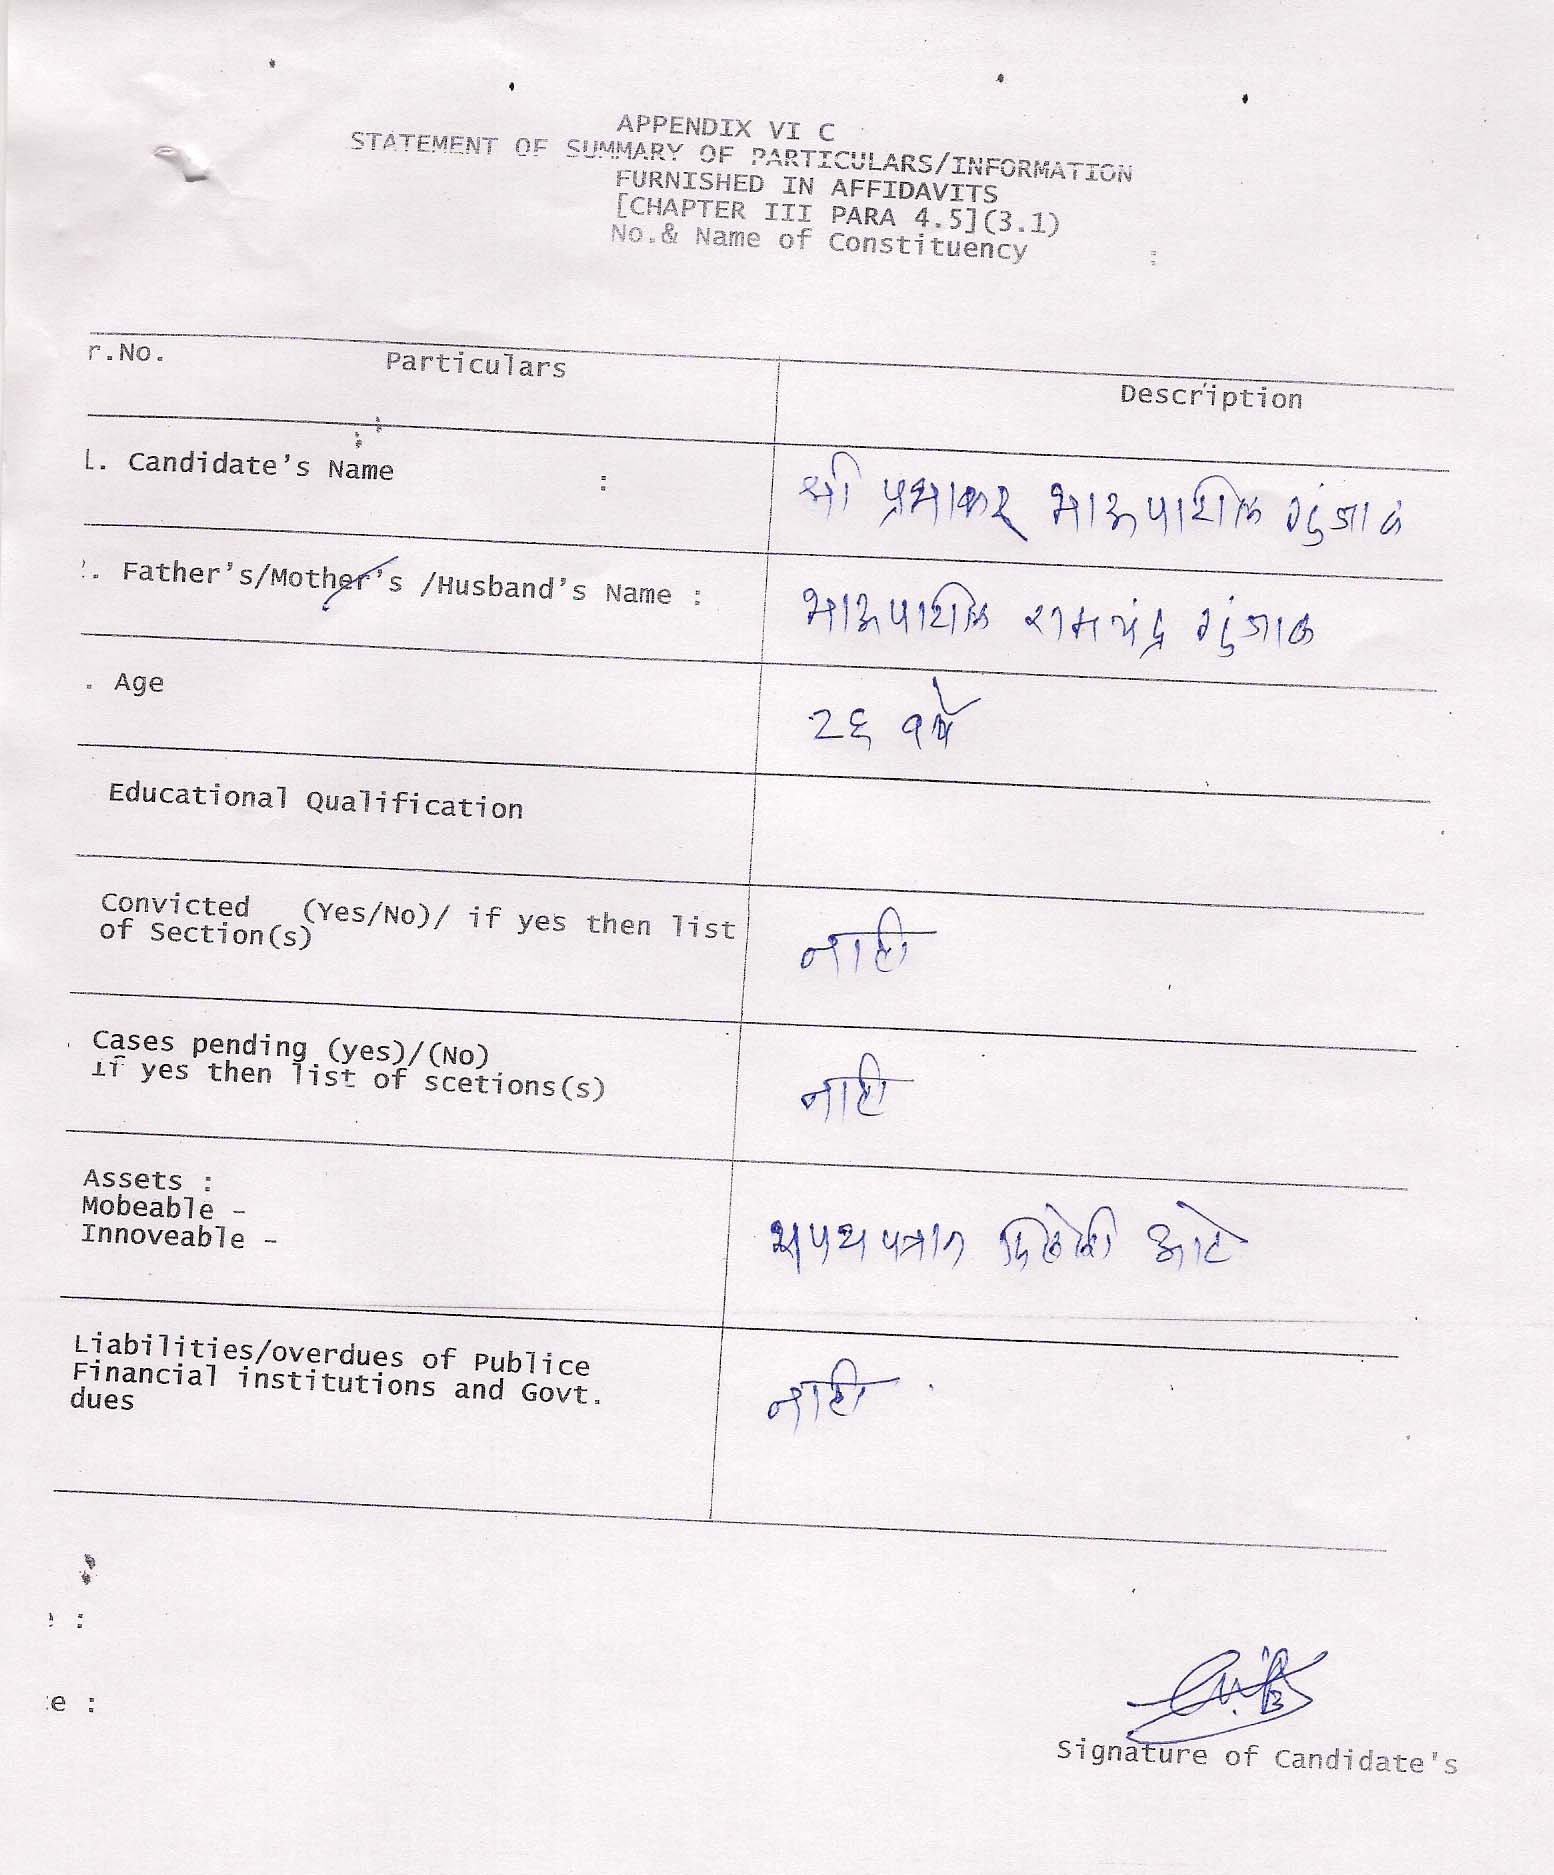 APPENDIX VI C
STATEMENT OF SUMMARY OF PARTICULARS/INFORMATION
FURNISHED IN AFFIDAVITS
[CHAPTER III PARA 4.5](3.1)
No.& Name of Constituency :
r.No. Particulars Description
1. Candidate's Name : श्री प्रभाकर भाऊपाटील गुंजाळ
2. Father's/Mother's /Husband's Name : भाऊपाटील रामचंद्र गुंजाळ
. Age २६ वर्षे
Educational Qualification
Convicted (Yes/No)/ if yes then list
of Section(s) नाही
Cases pending (yes)/(No)
If yes then list of scetions(s) नाही
Assets :
Mobeable -
Innoveable - शपथपत्रात दिलेली आहे
Liabilities/overdues of Publice
Financial institutions and Govt.
dues नाही
:
e :
Signature of Candidate's